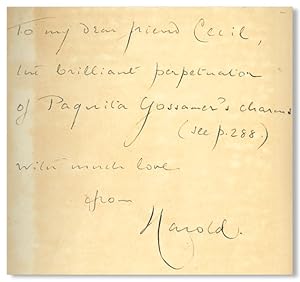 To my dear friend Cecil,
the brilliant perpetuator
of Paquita Gossamer's charms
(see p. 288.)
with much love
from
Harold.